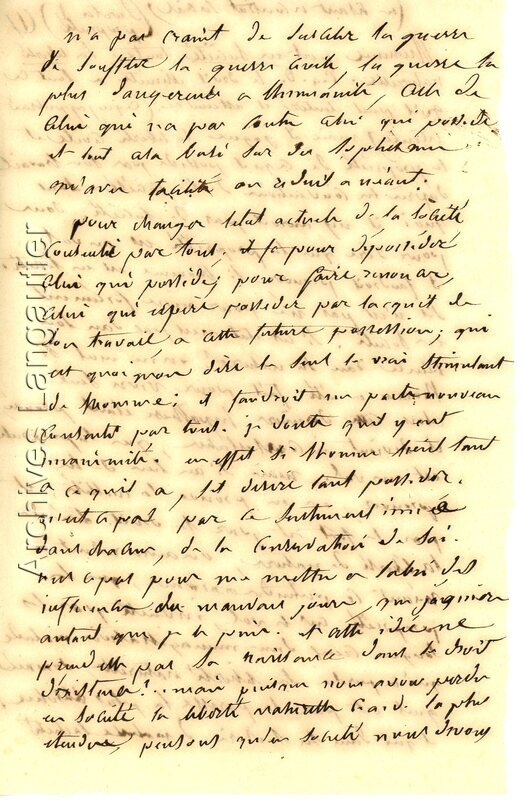 n'a pas craint de susciter la guerre
de souffler la guerre civile, la guerre la
plus dangereuse a l'humanité, celle de
celui qui n'a pas contre celui qui possede
et tout cela basé sur des sophismes
qu'avec facilité on reduit a néant.
pour changer l'etat actuele de la société
consenti par tous. il fa pour deposséder
celui qui posséde; pour faire renoncer,
celui qui espere posseder par l'acquit de
son travail, a cette future possession; qui
est quoiqu'on dise le seul le vrai stimulant
de l'homme; il faudroit un pacte nouveau
consenti par tous. je doute qu'il y ent
unanimité. en effet si l'homme tient tant
a ce quil a, et désire tant posseder.
n'est ce pas par ce sentiment inné
dans chacun, de la conservation de soi.
n'est ce pas pour me mettre a l'abri des
influences des mauvais jours, que
autant que je le puis. et cette idée ne
prend elle pas sa naissance dans le droit
d'existence?.. mais puisque nous avons perdu
en société la liberté naturelle c.a.d. la plus
étendue, pensons qu'en société nous devons
Archives Langautier